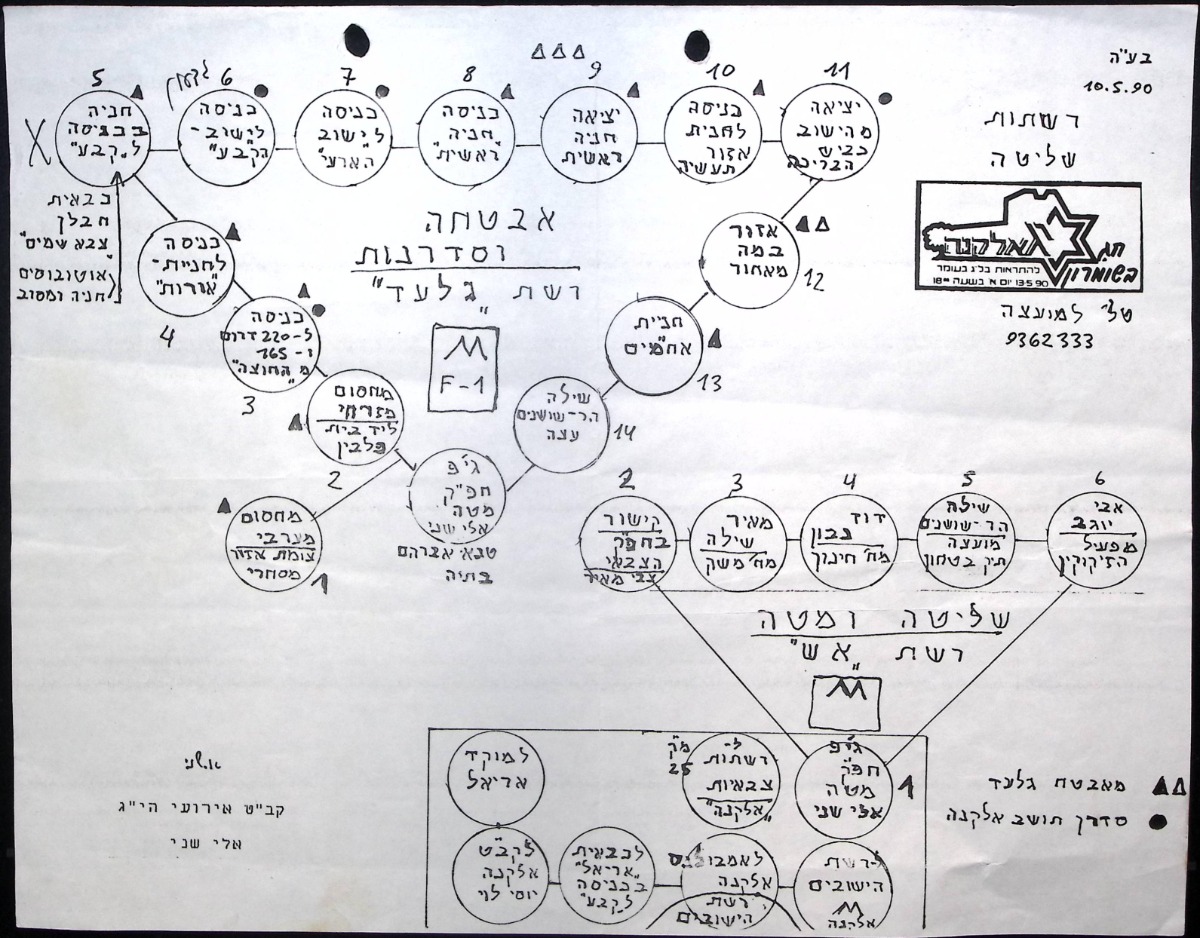 בע"ה
10.5.90
רשתות
שליטה
חג
אלקנה
בשומרון
להתראות בל"ג בעומר
13·5·90 יום א' בשעה 18⁰⁰
טל' למועצה
9362333
5
חניה
בכניסה
ל"קבע"
6
כניסה
לישוב-
הקבע"
7
כניסה
לישוב
"הארעי"
8
כניסה
חניה
"ראשית"
9
יציאה
חניה
ראשית
10
כניסה
לחנית
אזור
תעשיה
11
יציאה
מהישוב
כביש
הבריכה
כבאית
חבלן
"צבא שמים"
אוטובוסים
חניה ומסוב
4
כניסה
לחניית-
"אורות"
3
כניסה
ל-220 דרום
ו-165
מ"החוצה"
2
מחסום
מזרחי
ליד בית
פלבין
1
מחסום
מערבי
צומת אזור
מסחרי
אבטחה
וסדרנות
רשת "גלעד"
M
F-1
ג'פ
חפ"ק
מטה
אלי שני
אברהם
בתיה
14
שילה
הר-שושנים
עצה
13
חניית
אח"מים
12
אזור
במה
מאחור
2
קישור
בחפ"ק
הצבאי
צבי מאיר
3
מאיר
שילה
מח' משק
4
דוד
נבון
מח' חינוך
5
שילה
הר-שושנים
מועצה
תיק בטחון
6
אבי
יוגב
מפעיל
הזיקוקין
שליטה ומטה
רשת "אש"
M
1
ג'פ
חפ"ק
מטה
אלי שני
מק
25
ל-
רשתות
צבאיות
"אלקנה"
למוקד
אריאל
לקב"ט
אלקנה
יוסי לוי
לכבאית
"אריאל"
בכניסה
לקבע"
לאמבולנס
אלקנה
רשת
הישובים
לרשת
הישובים
M
אלקנה
מאבטח גלעד
סדרן תושב אלקנה
קב"ט אירועי הי"ג
אלי שני